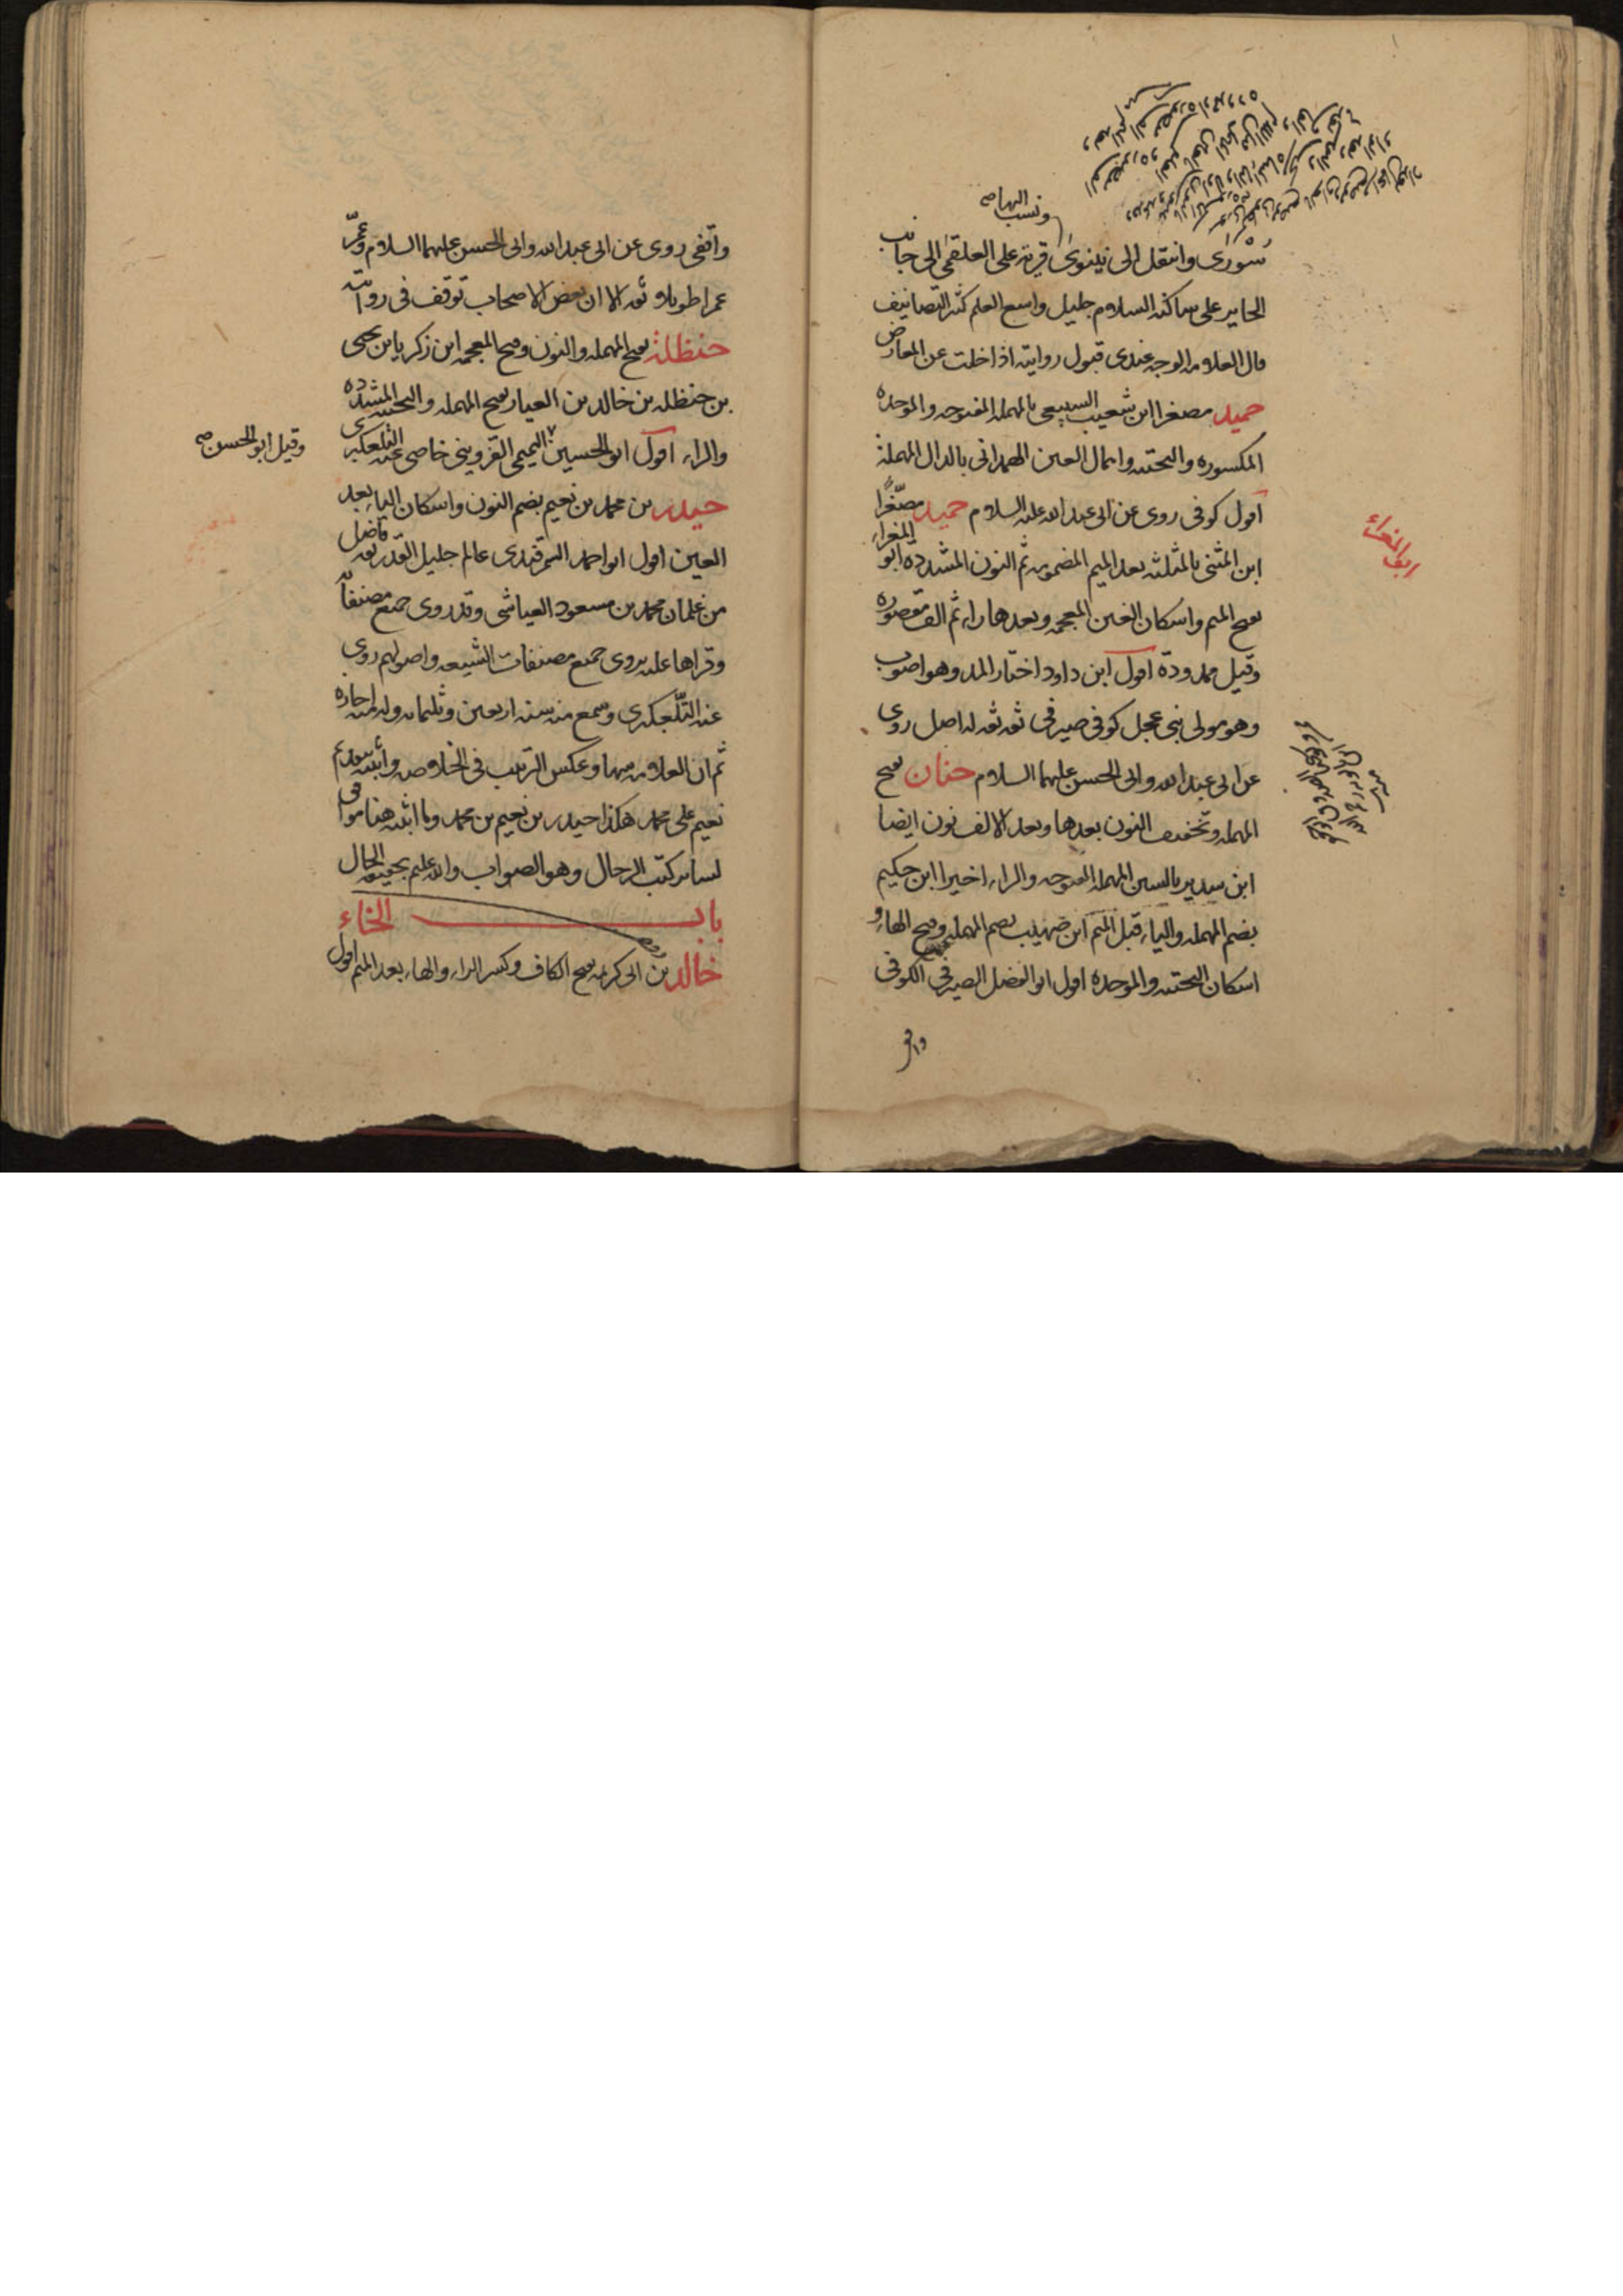 ونسب اليها صح
سُورى وانتقل الى نينوى قرية على العلقمى الى جانب
الحاير على ساكنه السلام جليل واسع العلم كثير التصانيف
قال العلامه الوجه عندى قبول روايته اذا خلت عن المعارض
حميد مصغرا ابن شعيب السبيعى بالمهمله المفتوحه والموحده
المكسوره والتحتيه واهمال العين الهمدانى بالدال المهملة
اقول كوفى روى عن ابى عبد الله عليه السلام حميد مصغّرًا
ابن المثنى بالمثلثه بعد الميم المضمومه ثم النون المشدده ابو المغراء
بفتح الميم واسكان الغين المعجمه وبعدها راء ثم الف مقصوره
وقيل ممدودة اقول ابن داود اختار المد وهو اصوب
وهو مولى بنى عجل كوفى صيرفى ثقه ثقه له اصل روى
عن ابى عبد الله وابى الحسن عليهما السلام حنان بفتح
المهمله وتخفيف النون بعدها وبعد الالف نون ايضا
ابن سدير بالسين المهمله المفتوحه والراء اخيرا ابن حكيم
بضم المهمله والياء قبل الميم ابن صهيب بضم المهمله وفتح الهاء و
اسكان التحتيه والموحده اقول ابو الفضل الصيرفى الكوفى
واقفى
واقفى روى عن ابى عبد الله وابى الحسن عليهما السلام وعمّر
عمرا طويلا وثقه الا ان بعض الاصحاب توقف فى روايته
حنظلة بفتح المهمله والنون وفتح المعجمه ابن زكريا بن يحيى
بن حنظله بن خالد بن العيار بفتح المهمله والتحتيه المشدده
والراء اقول ابو الحسين التميمى القزوينى خاصى عنه التلعكبرى
وقيل ابو الحسن صح
حيدر بن محمد بن نعيم بضم النون واسكان الياء بعد
العين اقول ابو احمد السمرقندى عالم جليل القدر ثقه فاضل
من غلمان محمد بن مسعود العياشى وقد روى جميع مصنفاته
وقراها عليه روى جميع مصنفات الشيعه واصولهم روى
عنه التلّعكبرى وسمع منه سنه اربعين وثلثمائه وله منه اجازه
ثم ان العلامه عكس الترتيب فى الخلاصه
نعيم على محمد هكذا حيدر بن نعيم بن محمد وما اثبته هنا موافق
لساير كتب الرجال وهو الصواب والله عليم بحقيقه الحال
باب الخاء
خالد بن ابى كريمه بفتح الكاف وكسر الراء والهاء بعد الميم اقول